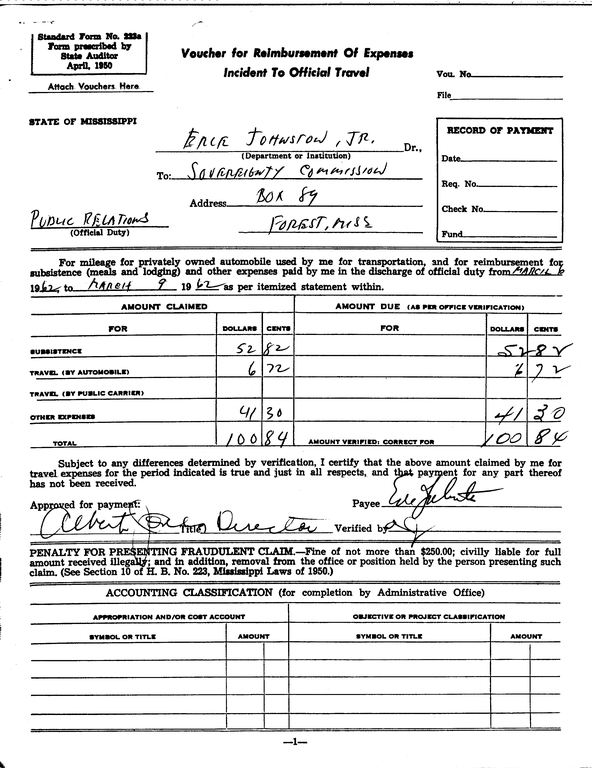 Standard Form No. 223a
Form prescribed by
State Auditor
April, 1950
Attach Vouchers Here
Voucher for Reimbursement Of Expenses
Incident To Official Travel
Vou. No.
File
STATE OF MISSISSIPPI
ERLE JOHNSTON, JR. Dr.,
(Department or Institution)
To: SOVEREIGNTY COMMISSION
Address BOX 89
FOREST, MISS
PUBLIC RELATIONS
(Official Duty)
RECORD OF PAYMENT
Date
Req. No.
Check No.
Fund
For mileage for privately owned automobile used by me for transportation, and for reimbursement for
subsistence (meals and lodging) and other expenses paid by me in the discharge of official duty from MARCH 6
1962, to MARCH 9 1962 as per itemized statement within.
AMOUNT CLAIMED AMOUNT DUE (AS PER OFFICE VERIFICATION)
FOR DOLLARS CENTS FOR DOLLARS CENTS
SUBSISTENCE 52 82 52 82
TRAVEL (BY AUTOMOBILE) 6 72 6 72
TRAVEL (BY PUBLIC CARRIER)
OTHER EXPENSES 41 30 41 30
TOTAL 100 84 AMOUNT VERIFIED: CORRECT FOR 100 84
Subject to any differences determined by verification, I certify that the above amount claimed by me for
travel expenses for the period indicated is true and just in all respects, and that payment for any part thereof
has not been received.
Approved for payment: Payee Erle Johnston
Albert Jones (Title) Director Verified by
PENALTY FOR PRESENTING FRAUDULENT CLAIM.—Fine of not more than $250.00; civilly liable for full
amount received illegally; and in addition, removal from the office or position held by the person presenting such
claim. (See Section 10 of H. B. No. 223, Mississippi Laws of 1950.)
ACCOUNTING CLASSIFICATION (for completion by Administrative Office)
APPROPRIATION AND/OR COST ACCOUNT OBJECTIVE OR PROJECT CLASSIFICATION
SYMBOL OR TITLE AMOUNT SYMBOL OR TITLE AMOUNT
—1—